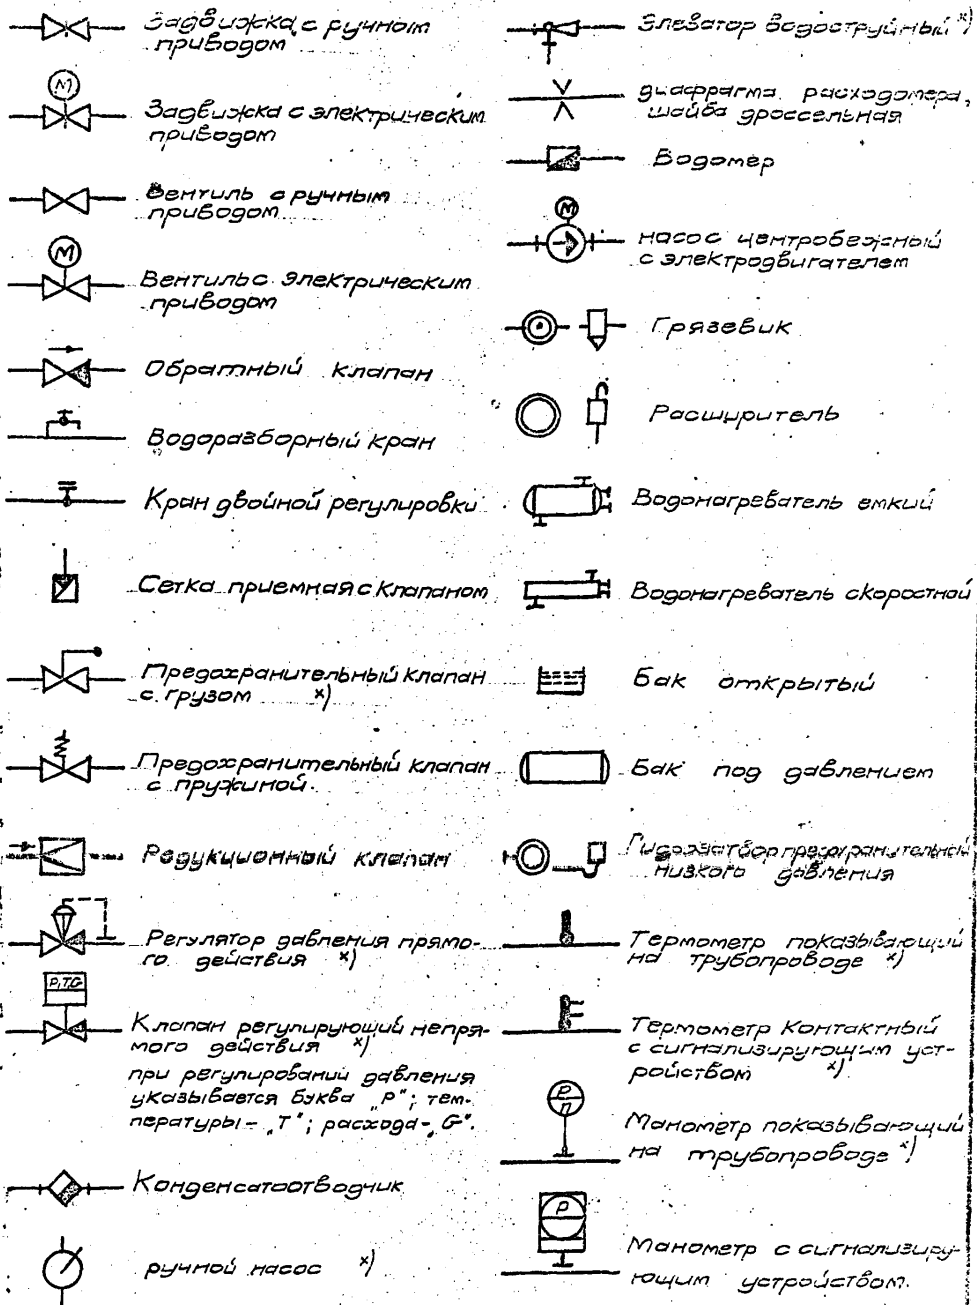 Задвижка с ручным
приводом
М
Задвижка с электрическим
приводом
Вентиль с ручным
приводом
М
Вентиль с электрическим
приводом
Обратный клапан
Водоразборный кран
Кран двойной регулировки
Сетка приемная с клапаном
Предохранительный клапан
с грузом х)
Предохранительный клапан
с пружиной.
Редукционный клапан
Регулятор давления прямо-
го действия х)
P,T,G
Клапан регулирующий непря-
мого действия х)
при регулировании давления
указывается буква „P"; тем-
пературы - „T"; расхода - „G".
Конденсатоотводчик
ручной насос х)
Элеватор водоструйный х)
диафрагма расходомера,
шайба дроссельная
Водомер
М
насос центробежный
с электродвигателем
Грязевик
Расширитель
Водонагреватель емкий
Водонагреватель скоростной
Бак открытый
Бак под давлением
Гидрозатвор предохранительный
низкого давления
Термометр показывающий
на трубопроводе х)
Термометр контактный
с сигнализирующим уст-
ройством х)
Р
П
Манометр показывающий
на трубопроводе х)
Р
Манометр с сигнализиру-
ющим устройством.